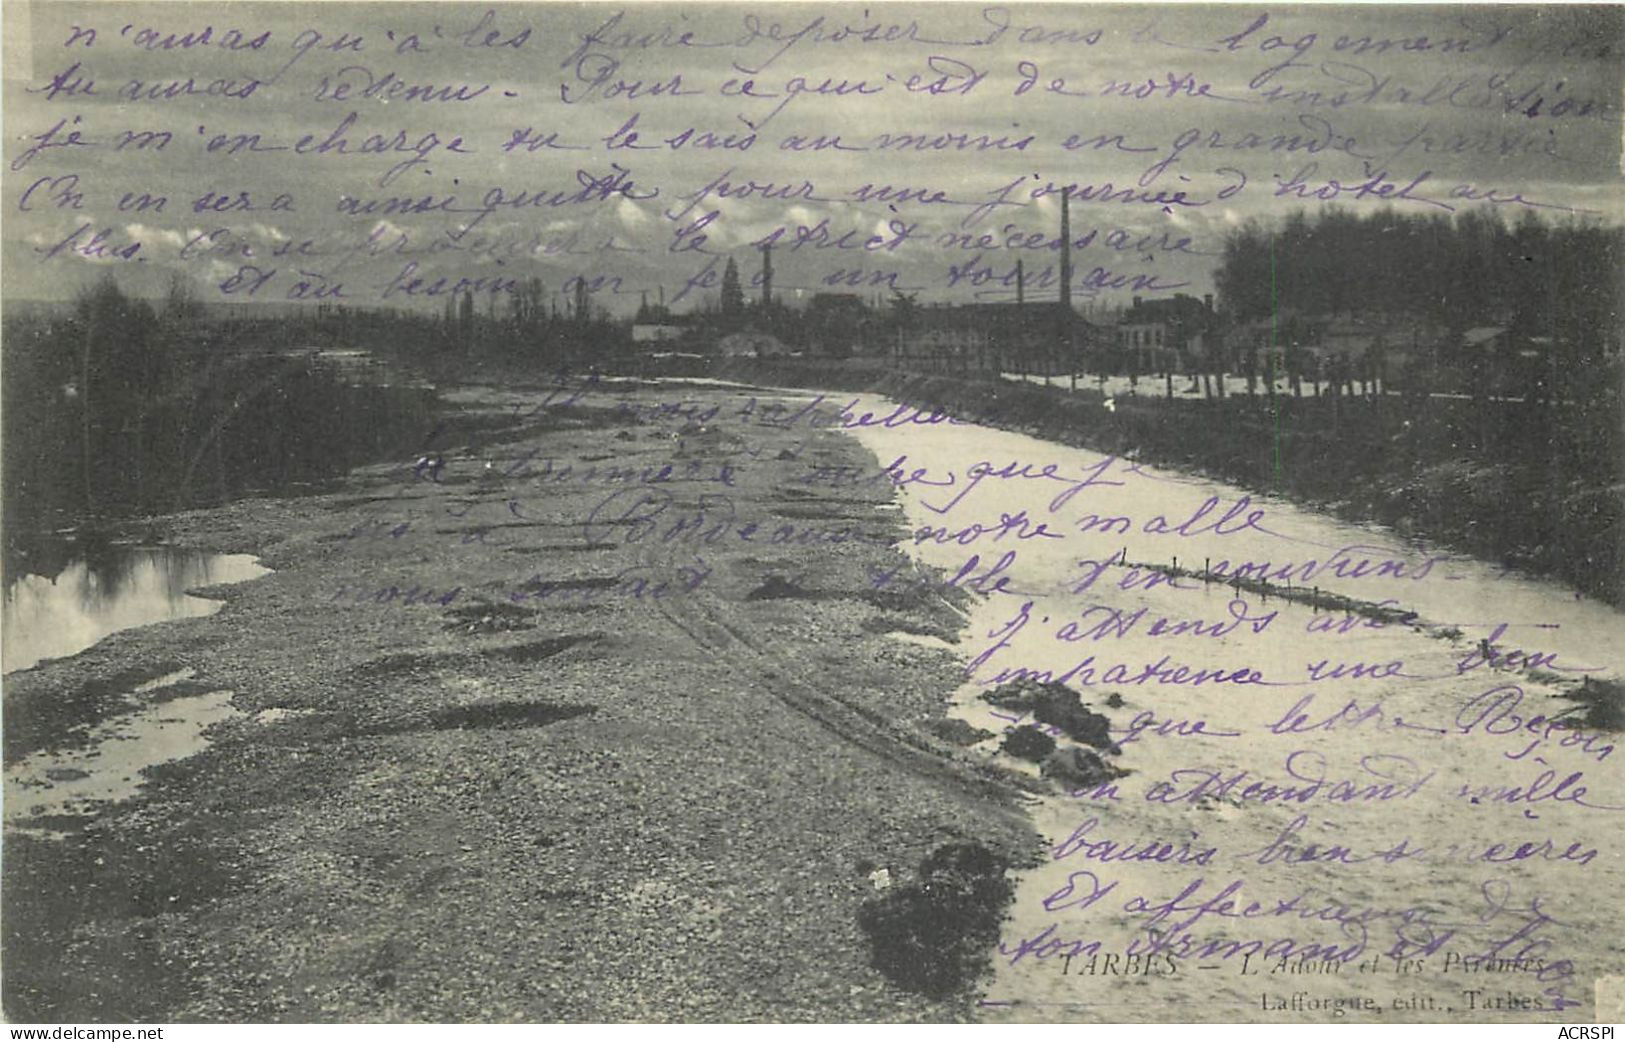 n'auras qu'à les faire déposer dans le logement que
tu auras retenu - Pour ce qui est de notre installation
je m'en charge tu le sais au moins en grande partie
On en sera ainsi quitte pour une journée d'hôtel au
plus. On se procurera le strict nécessaire
et au besoin on fera un tour
nous
que je
à Bordeaux notre malle
nous serait utile t'en souviens
J'attends avec
impatience une bien
que lettre Reçois
en attendant mille
baisers bien sincères
et affectueux de
ton Armand et
TARBES — L'Adour et les Pyrénées
Lafforgue, édit., Tarbes
ACRSPI